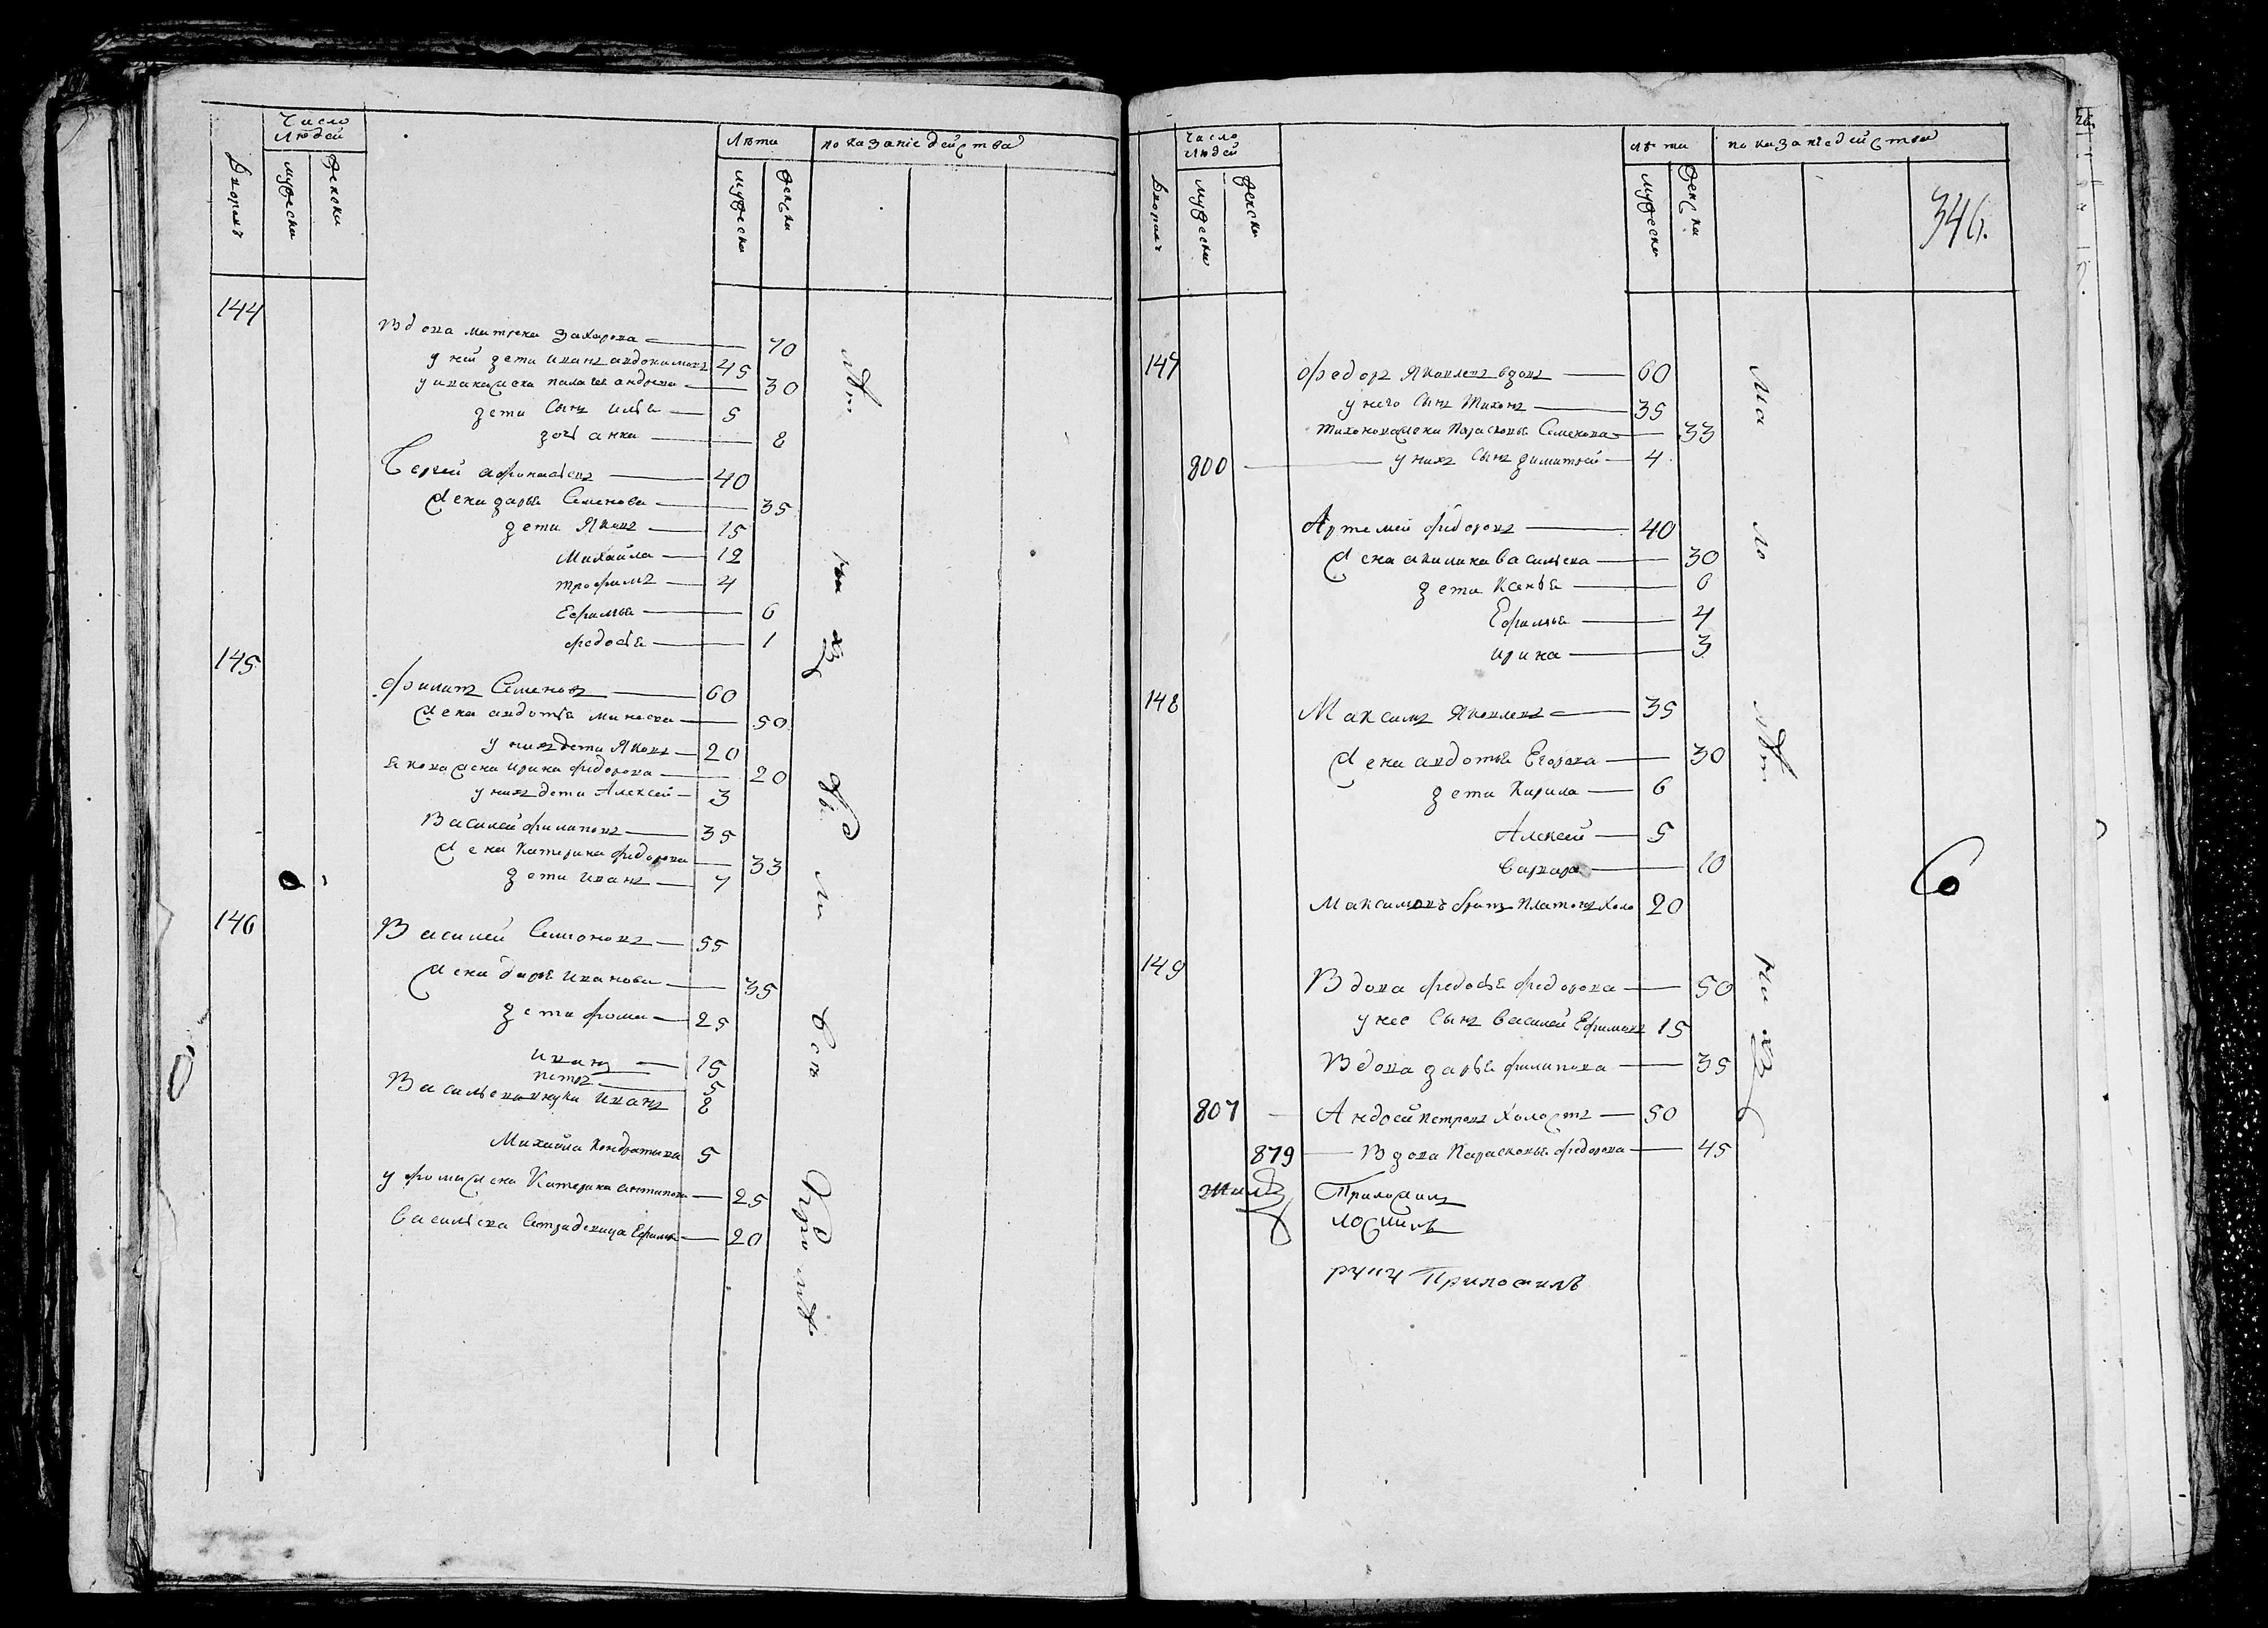 Число людей
Дворовъ
мужески
женски
Лѣта
мужески
женски
показаніе действа
144
Вдова матрена Захарова 70
у ней дети иванъ авдокимовъ 45
у ивана жена палагея андреева 30
дети Сынъ илья 5
дочь анна 8
Сергей афонасьевъ 40
жена дарья Семенова 35
дети Яковъ 15
Михайла 12
трофимъ 4
Ефимья 6
федосья 1
145
филипъ Семеновъ 60
жена авдотья 50
у нихъ дети Яковъ 20
якова жена ирина федорова 20
у нихъ дети Алексей 3
Василей филиповъ 35
жена Катерина федорова 33
дети иванъ 7
146
Василей Семионовъ 55
жена дарья иванова 35
дети фома 25
иванъ 15
петръ 5
Васильева внуки иванъ 8
Михайла Кондратьевы 5
у фомы жена Катерина антипова 25
васильева Ефимья 20
Число людей
Дворовъ
мужески
женски
лѣта
мужески
женски
показаніе действа
346.
147
федоръ Яковлевъ вдовъ 60
у него Сынъ Тихонъ 35
тихонова жена Парасковья Семенова 33
800 у нихъ Сынъ димитрей 4
Артемей федоровъ 40
жена акилина васильева 30
дети Ксенья 6
Ефимья 4
ирина 3
148
Максимъ Яковлевъ 35
жена авдотья Егорова 30
дети Кирила 6
Алексей 5
варвара 10
Максимовъ братъ Платонъ холо 20
149
Вдова федосья федорова 50
у нее Сынъ василей Ефимовъ 15
Вдова дарья филипова 35
807 Андрей петровъ холостъ 50
879 Вдова Парасковья федорова 45
руку Приложилъ